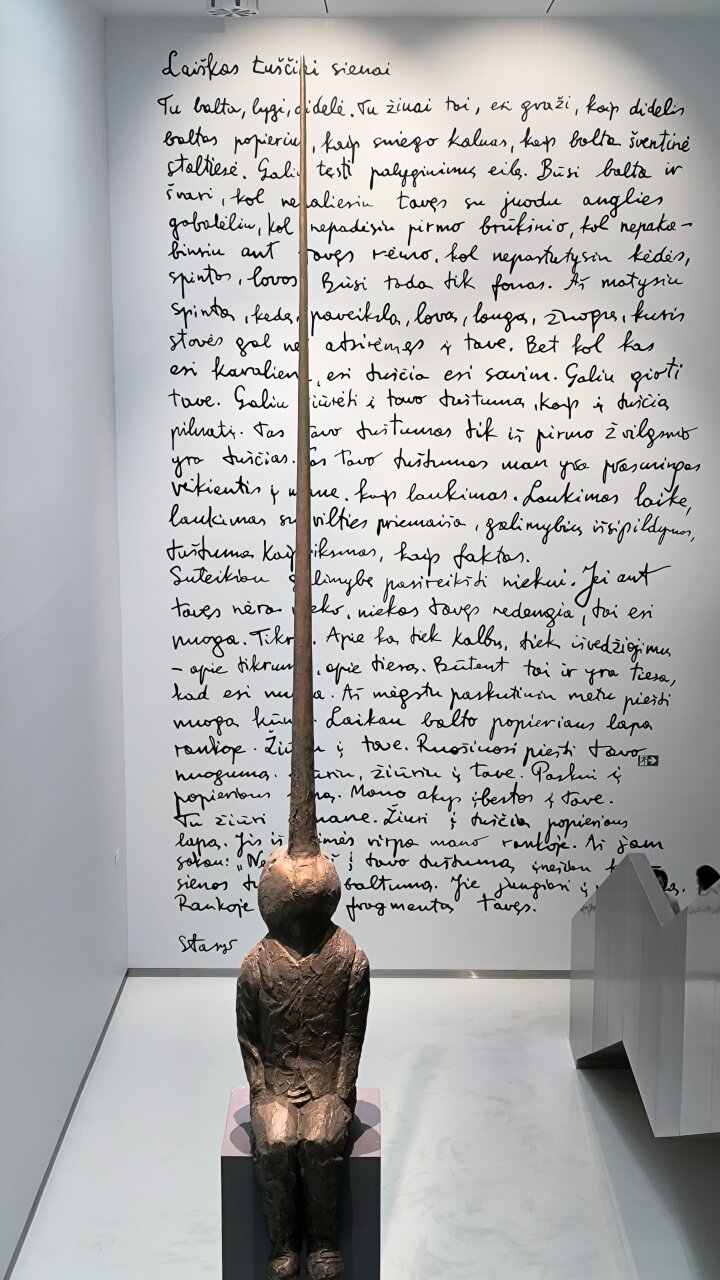 Laiškas tuščiai sienai
Tu balta, lygi, didelė. Tu žinai tai, esi graži, kaip didelis
baltas popierius, kaip sniego kalnas, kaip balta šventinė
staltiesė. Galiu tęsti palyginimų eilę. Būsi balta ir
švari, kol nepaliesiu tavęs su juodu anglies
gabalėliu, kol nepadėsiu pirmo brūkšnio, kol nepaka-
binsiu ant tavęs rėmo, kol nepastatysiu kėdės,
spintos, lovos. Būsi tada tik fonas. Aš matysiu
spintą, kėdę, paveikslą, lovą, langą, žmogų, kuris
stovės gal net atsirėmęs į tave. Bet kol kas
esi kavalieriu, esi tuščia esi savim. Galiu girti
tave. Galiu žiūrėti į tavo tuštumą, kaip į tuščią
pilnatį. Tas tavo tuštumas tik iš pirmo žvilgsnio
yra tuščias. Tas tavo tuštumas man yra prasmingas
veikiantis į mane, kaip laukimas. Laukimas laike,
laukimas su vilties priemaiša, galimybių išsipildymas,
tuštuma kaip riksmas, kaip faktas.
Suteikiau galimybę pasireikšti niekui. Jei ant
tavęs nėra nieko, niekas tavęs nedengia, tai esi
nuoga. Tikra. Apie ką tiek kalbų, tiek išvedžiojimų
– apie tikrumą, apie tiesą. Būtent tai ir yra tiesa,
kad esi nuoga. Aš mėgstu paskutiniu metu piešti
nuogą kūną. Laikau balto popieriaus lapą
rankoje. Žiūriu į tave. Ruošiuosi piešti tavo
nuogumą. Žiūriu, žiūriu į tave. Paskui į
popieriaus lapą. Mano akys įbestos į tave.
Tu žiūri į mane. Žiūri į tuščią popieriaus
lapą. Jis iš baimės virpa mano rankoje. Aš jam
sakau: „ į tavo tuštumą įnešiu
sienos baltumą. Jie jungiasi į
Rankoje fragmentas tavęs.
Stasys